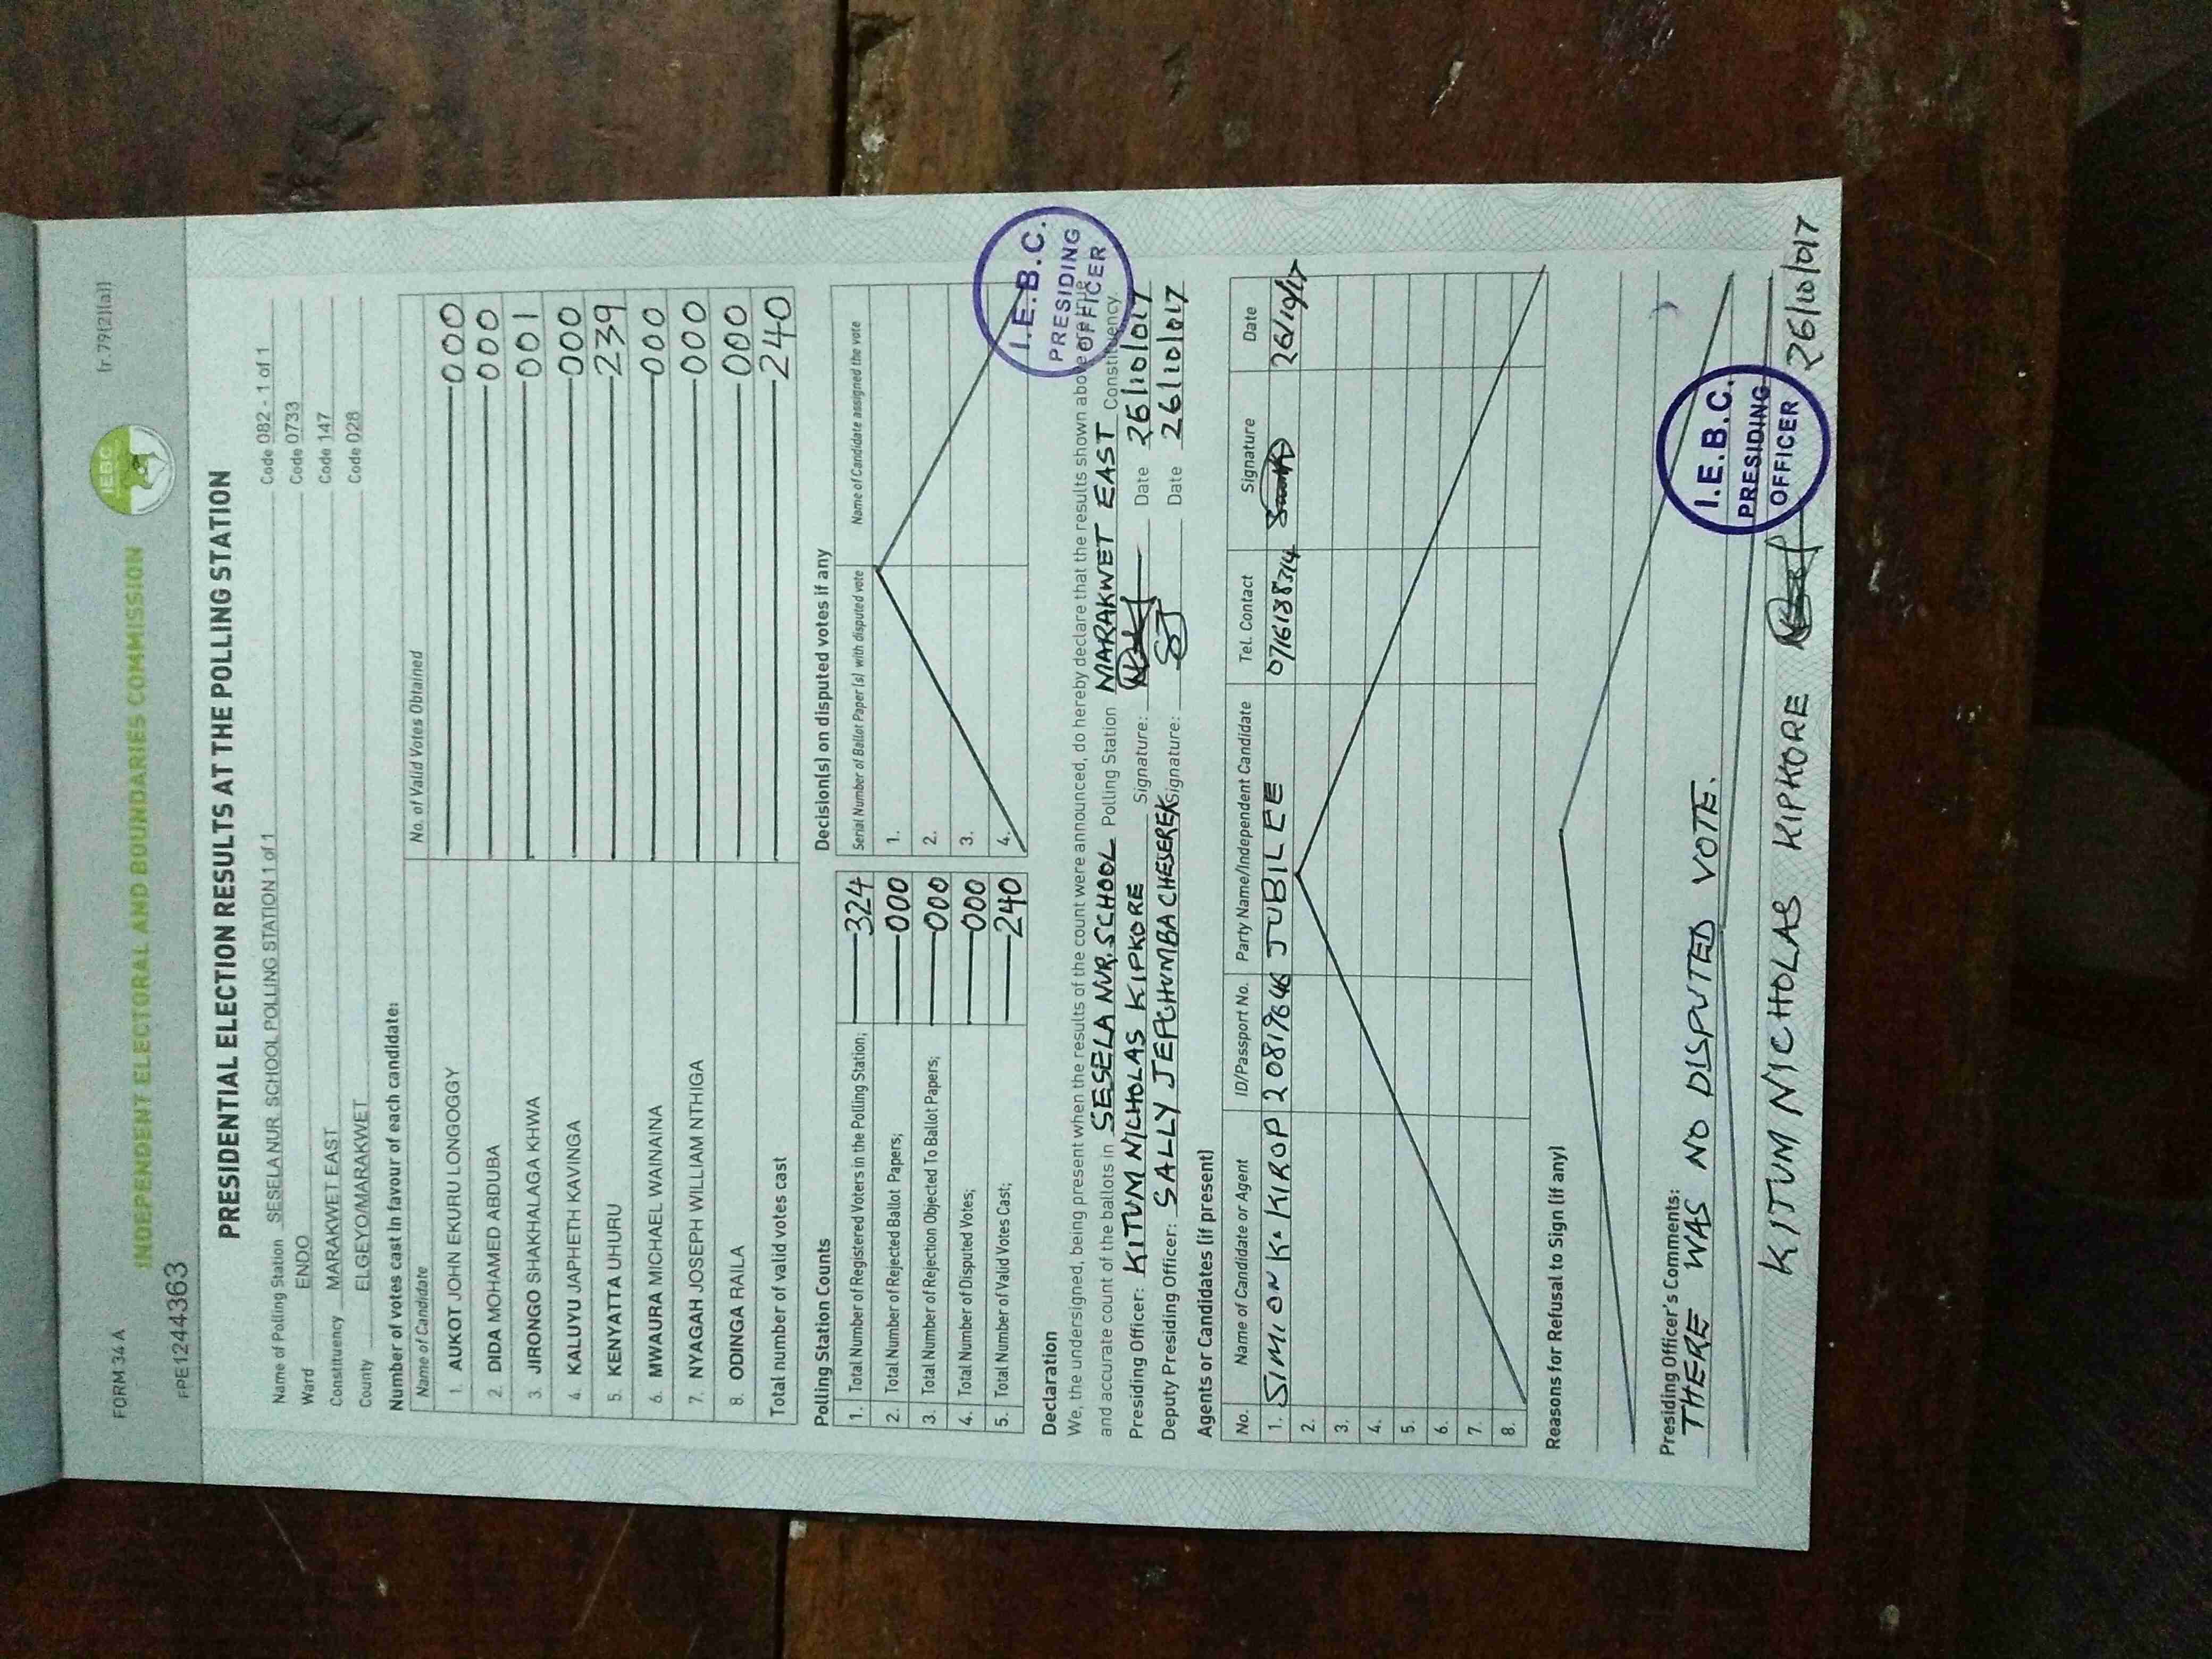 FORM 34 A
(r.79(2)(a))
IEBC
INDEPENDENT ELECTORAL AND BOUNDARIES COMMISSION
FPE1244363
PRESIDENTIAL ELECTION RESULTS AT THE POLLING STATION
Name of Polling Station SESELA NUR. SCHOOL POLLING STATION 1 of 1 Code 082 - 1 of 1
Ward ENDO Code 0733
Constituency MARAKWET EAST Code 147
County ELGEYO/MARAKWET Code 028
Number of votes cast in favour of each candidate:
Name of Candidate No. of Valid Votes Obtained
1. AUKOT JOHN EKURU LONGOGGY 000
2. DIDA MOHAMED ABDUBA 000
3. JIRONGO SHAKHALAGA KHWA 001
4. KALUYU JAPHETH KAVINGA 000
5. KENYATTA UHURU 239
6. MWAURA MICHAEL WAINAINA 000
7. NYAGAH JOSEPH WILLIAM NTHIGA 000
8. ODINGA RAILA 000
Total number of valid votes cast 240
Polling Station Counts
1. Total Number of Registered Voters in the Polling Station; 324
2. Total Number of Rejected Ballot Papers; 000
3. Total Number of Rejection Objected To Ballot Papers; 000
4. Total Number of Disputed Votes; 000
5. Total Number of Valid Votes Cast; 240
Decision(s) on disputed votes if any
Serial Number of Ballot Paper (s) with disputed vote Name of Candidate assigned the vote
1.
2.
3.
4.
I.E.B.C.
PRESIDING
OFFICER
Declaration
We, the undersigned, being present when the results of the count were announced, do hereby declare that the results shown above are true
and accurate count of the ballots in SESELA NUR. SCHOOL Polling Station MARAKWET EAST Constituency.
Presiding Officer: KITUM NICHOLAS KIPKORE Signature: Date 26/10/017
Deputy Presiding Officer: SALLY JEPCHUMBA CHESEREK Signature: Date 26/10/017
Agents or Candidates (if present)
No. Name of Candidate or Agent ID/Passport No. Party Name/Independent Candidate Tel. Contact Signature Date
1. SIMION K. KIROP JUBILEE 26/10/17
2.
3.
4.
5.
6.
7.
8.
Reasons for Refusal to Sign (if any)
Presiding Officer's Comments:
THERE WAS NO DISPUTED VOTE.
I.E.B.C.
PRESIDING
OFFICER
KITUM NICHOLAS KIPKORE 26/10/017